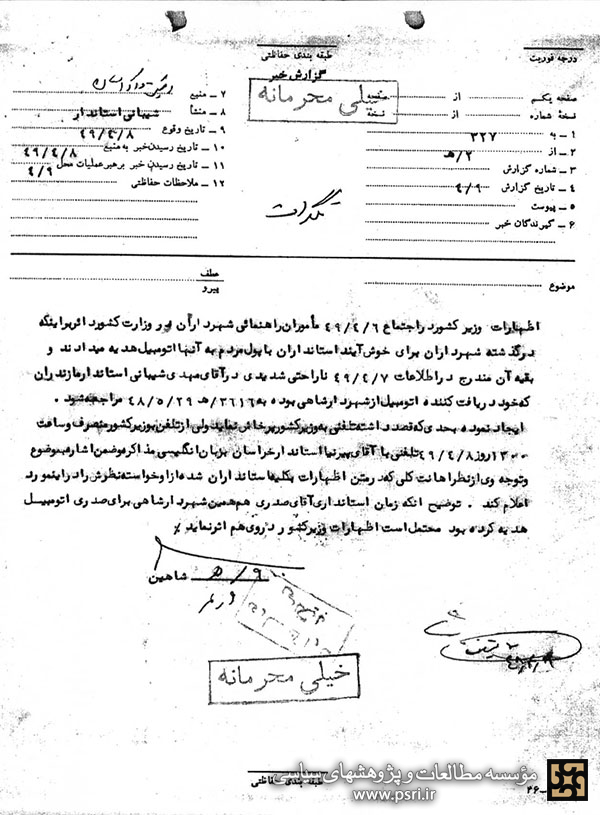 طبقه بندی حفاظتی
درجه فوریت
گزارش خبر
خیلی محرمانه
صفحه یکم از صفحه
نسخه شماره از نسخه
۱ ـ به ۳۲۷
۲ ـ از ۲/هـ
۳ ـ شماره گزارش
۴ ـ تاریخ گزارش ۴/۹
۵ ـ پیوست
۶ ـ گیرندگان خبر
۷ ـ منبع
۸ ـ منشأ شیبانی استاندار
۹ ـ تاریخ وقوع ۴۹/۴/۸
۱۰ ـ تاریخ رسیدن خبر به منبع ۴۹/۴/۸
۱۱ ـ تاریخ رسیدن خبر برهبر عملیات محل ۴/۹
۱۲ ـ ملاحظات حفاظتی
موضوع
عطف
پیرو
اظهارات وزیر کشور در اجتماع ۴۹/۴/۶ مأموران راهنمائی شهرداران در وزارت کشور دائر براینکه
در گذشته شهرداران برای خوش آیند استانداران با پول مردم به آنها اتومبیل هدیه میدادند و
بقیه آن مندرج در اطلاعات ۴۹/۴/۷ ناراحتی شدیدی در آقای مهدی شیبانی استاندار مازندران
که خود دریافت کننده اتومبیل از شهردار شاهی بوده به ۳۶۱۶/هـ ۴۸/۵/۲۹ مراجعه شود .
ایجاد نموده بحدی که قصد داشته تلفنی به وزیر کشور پرخاش نماید ولی از تلفن بوزیر کشور منصرف و ساعت
۱۳۰۰ روز ۴۹/۴/۸ تلفنی با آقای پیرنیا استاندار خراسان بزبان انگلیسی مذاکره و ضمن اشاره بموضوع
و توجه وی از نظر اهانت کلی که در متن اظهارات بکلیه استانداران شده از او خواسته نظرش را در اینمورد
اعلام کند . توضیح آنکه زمان استانداری آقای صدری هم همین شهردار شاهی برای صدری اتومبیل
هدیه کرده بود محتمل است اظهارات وزیر کشور در وی هم اثر نماید ٪
۹/هـ شاهین
خیلی محرمانه
طبقه بندی حفاظتی
مؤسسه مطالعات و پژوهشهای سیاسی
www.psri.ir
ـ۲۶